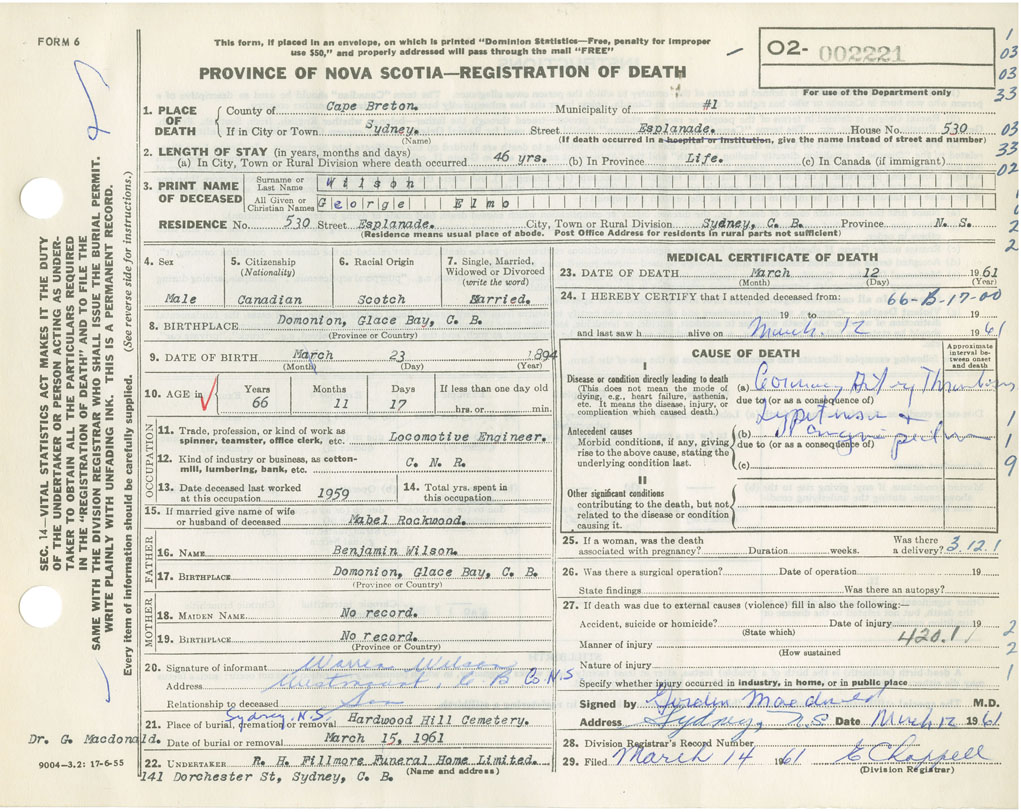 FORM 6
This form, if placed in an envelope, on which is printed "Dominion Statistics—Free, penalty for improper
use $50," and properly addressed will pass through the mail "FREE"
PROVINCE OF NOVA SCOTIA—REGISTRATION OF DEATH
02- 002221
For use of the Department only
1
03
03
33
03
33
02
SEC. 14—VITAL STATISTICS ACT MAKES IT THE DUTY
OF THE UNDERTAKER OR PERSON ACTING AS UNDER-
TAKER TO OBTAIN ALL THE PARTICULARS REQUIRED
IN THE "REGISTRATION OF DEATH" AND TO FILE THE
SAME WITH THE DIVISION REGISTRAR WHO SHALL ISSUE THE BURIAL PERMIT.
WRITE PLAINLY WITH UNFADING INK. THIS IS A PERMANENT RECORD.
Every item of information should be carefully supplied. (See reverse side for instructions.)
1. PLACE OF DEATH
County of Cape Breton. Municipality of #1
If in City or Town Sydney. Street Esplanade. House No. 530
(Name) (If death occurred in a hospital or institution, give the name instead of street and number)
2. LENGTH OF STAY (in years, months and days)
(a) In City, Town or Rural Division where death occurred 46 yrs. (b) In Province Life. (c) In Canada (if immigrant)
3. PRINT NAME OF DECEASED
Surname or Last Name Wilson
All Given or Christian Names George Elmo
RESIDENCE No. 530 Street Esplanade. City, Town or Rural Division Sydney, C. B. Province N. S.
(Residence means usual place of abode. Post Office Address for residents in rural parts not sufficient)
4. Sex
Male
5. Citizenship (Nationality)
Canadian
6. Racial Origin
Scotch
7. Single, Married, Widowed or Divorced (write the word)
Married.
8. BIRTHPLACE Domonion, Glace Bay, C. B.
(Province or Country)
9. DATE OF BIRTH March 23 1894
(Month) (Day) (Year)
10. AGE in
Years 66
Months 11
Days 17
If less than one day old
hrs. or min.
OCCUPATION
11. Trade, profession, or kind of work as
spinner, teamster, office clerk, etc. Locomotive Engineer.
12. Kind of industry or business, as cotton-
mill, lumbering, bank, etc. C. N. R.
13. Date deceased last worked
at this occupation 1959
14. Total yrs. spent in
this occupation
15. If married give name of wife
or husband of deceased Mabel Rockwood.
FATHER
16. NAME Benjamin Wilson.
17. BIRTHPLACE Domonion, Glace Bay, C. B.
(Province or Country)
MOTHER
18. MAIDEN NAME No record.
19. BIRTHPLACE No record.
(Province or Country)
20. Signature of informant Warren Wilson
Address Westmount, C B Co. N.S
Relationship to deceased Son
Sydney. N.S.
21. Place of burial, cremation or removal Hardwood Hill Cemetery.
Dr. G. Macdonald. Date of burial or removal March 15, 1961
22. UNDERTAKER R. H. Fillmore Funeral Home Limited.
(Name and address)
9004-3.2: 17-6-55
141 Dorchester St, Sydney, C. B.
MEDICAL CERTIFICATE OF DEATH
23. DATE OF DEATH March 12 1961
(Month) (Day) (Year)
24. I HEREBY CERTIFY that I attended deceased from: 66-B-17-00
19 to 19
and last saw h alive on March. 12 1961
CAUSE OF DEATH
Approximate interval between onset and death
I
Disease or condition directly leading to death
(This does not mean the mode of
dying, e.g., heart failure, asthenia,
etc. It means the disease, injury, or
complication which caused death.)
(a) Coronary Artery Thrombosis
due to (or as a consequence of)
Antecedent causes
Morbid conditions, if any, giving
rise to the above cause, stating the
underlying condition last.
Hypertension &
(b) angina pectoris
due to (or as a consequence of)
(c)
II
Other significant conditions
contributing to the death, but not
related to the disease or condition
causing it.
25. If a woman, was the death
associated with pregnancy? Duration weeks. Was there
a delivery? 3.12.1
26. Was there a surgical operation? Date of operation 19
State findings Was there an autopsy?
27. If death was due to external causes (violence) fill in also the following:—
Accident, suicide or homicide? Date of injury 19
(State which) 420.1
Manner of injury
(How sustained
Nature of injury
Specify whether injury occurred in industry, in home, or in public place
Signed by Gordon Macdonald M.D.
Address Sydney, N.S. Date March 12 1961
28. Division Registrar's Record Number
29. Filed March 14 1961 E Chappell
(Division Registrar)
1
1
9
2
2
1